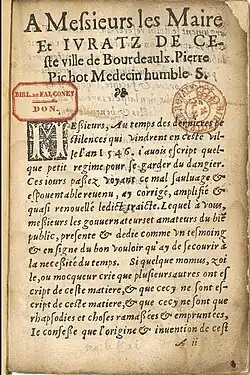 A Meſsieurs les Maire
Et IVRATZ DE CE-
ſte ville de Bourdeaulx. Pierre
Pichot Medecin humble S.
BIBL. DE FALCONET
DON.
MEſsieurs, Au temps des dernieres pe
ſtilences qui vindrent en ceſte vil-
le l'an 1546. i'auois eſcript quel-
que petit regime pour ſe garder du dangier.
Ces iours paſsez voyant ce mal ſauluage &
eſpouentable reuenu, ay corrigé, amplifié &
quaſi renouellé ledict traicte. Lequel à vous,
meſsieurs les gouuerneurs et amateurs du biẽ
public, preſente & dedie comme vn teſmoing
& en ſigne du bon vouloir qu'ay de ſecourir à
la neceſsité du temps. Si quelque momus, zoi
le, ou mocqueur crie que pluſieurs autres ont eſ
cript de ceſte matiere, & que cecy ne ſont eſ-
cript de ceſte matiere, & que cecy ne ſont que
rhapſodies et choſes ramaſsées & empruntées,
Ie confeſſe que l'origine & inuention de ceſt
A ii